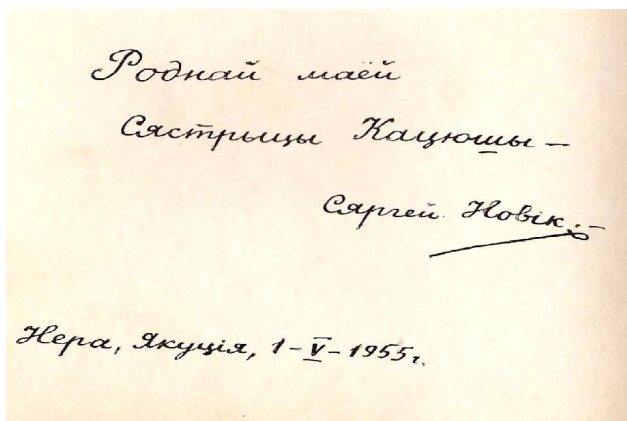 Роднай маёй
Сястрыцы Кацюшы —
Сяргей Новік.—
Нера, Якуція, 1-V-1955г.